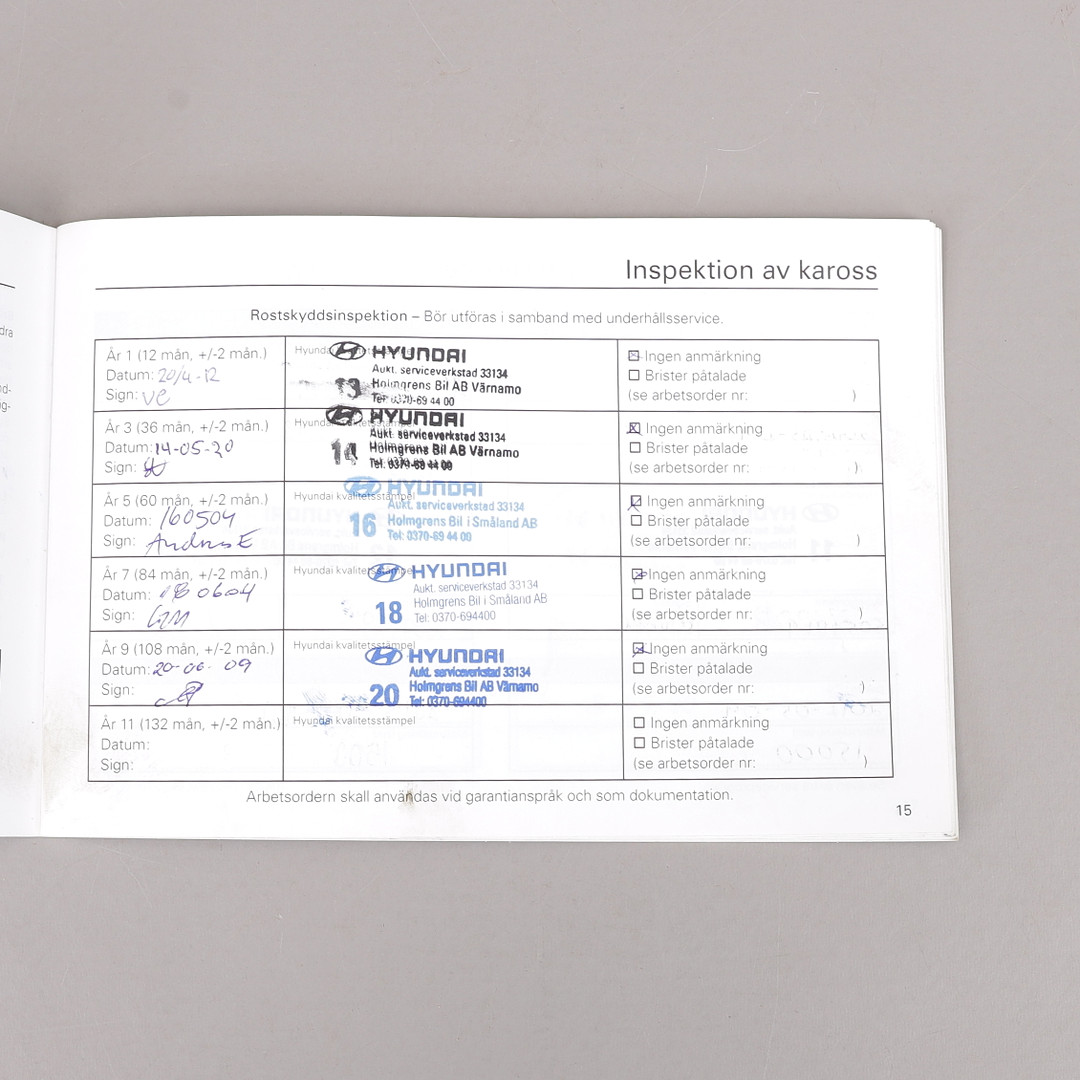 dra
nd-
ig-
Inspektion av kaross
Rostskyddsinspektion – Bör utföras i samband med underhållsservice.
År 1 (12 mån, +/-2 mån.)
Datum: 20/4-12
Sign: VC
Hyundai kvalitetsstämpel
HYUNDAI
Aukt. serviceverkstad 33134
Holmgrens Bil AB Värnamo
Tel: 0370-69 44 00
13
Ingen anmärkning
Brister påtalade
(se arbetsorder nr: )
År 3 (36 mån, +/-2 mån.)
Datum: 14-05-20
Sign:
Hyundai kvalitetsstämpel
HYUNDAI
Aukt. serviceverkstad 33134
Holmgrens Bil AB Värnamo
Tel. 0370-69 44 00
14
Ingen anmärkning
Brister påtalade
(se arbetsorder nr: )
År 5 (60 mån, +/-2 mån.)
Datum: 160504
Sign: Andreas E
Hyundai kvalitetsstämpel
HYUNDAI
Aukt. serviceverkstad 33134
Holmgrens Bil i Småland AB
Tel: 0370-69 44 00
16
Ingen anmärkning
Brister påtalade
(se arbetsorder nr: )
År 7 (84 mån, +/-2 mån.)
Datum: 180604
Sign:
Hyundai kvalitetsstämpel
HYUNDAI
Aukt. serviceverkstad 33134
Holmgrens Bil i Småland AB
Tel: 0370-694400
18
Ingen anmärkning
Brister påtalade
(se arbetsorder nr: )
År 9 (108 mån, +/-2 mån.)
Datum: 20-06-09
Sign:
Hyundai kvalitetsstämpel
HYUNDAI
Aukt. serviceverkstad 33134
Holmgrens Bil AB Värnamo
Tel: 0370-694400
20
Ingen anmärkning
Brister påtalade
(se arbetsorder nr: )
År 11 (132 mån, +/-2 mån.)
Datum:
Sign:
Hyundai kvalitetsstämpel
Ingen anmärkning
Brister påtalade
(se arbetsorder nr: )
Arbetsordern skall användas vid garantianspråk och som dokumentation.
15